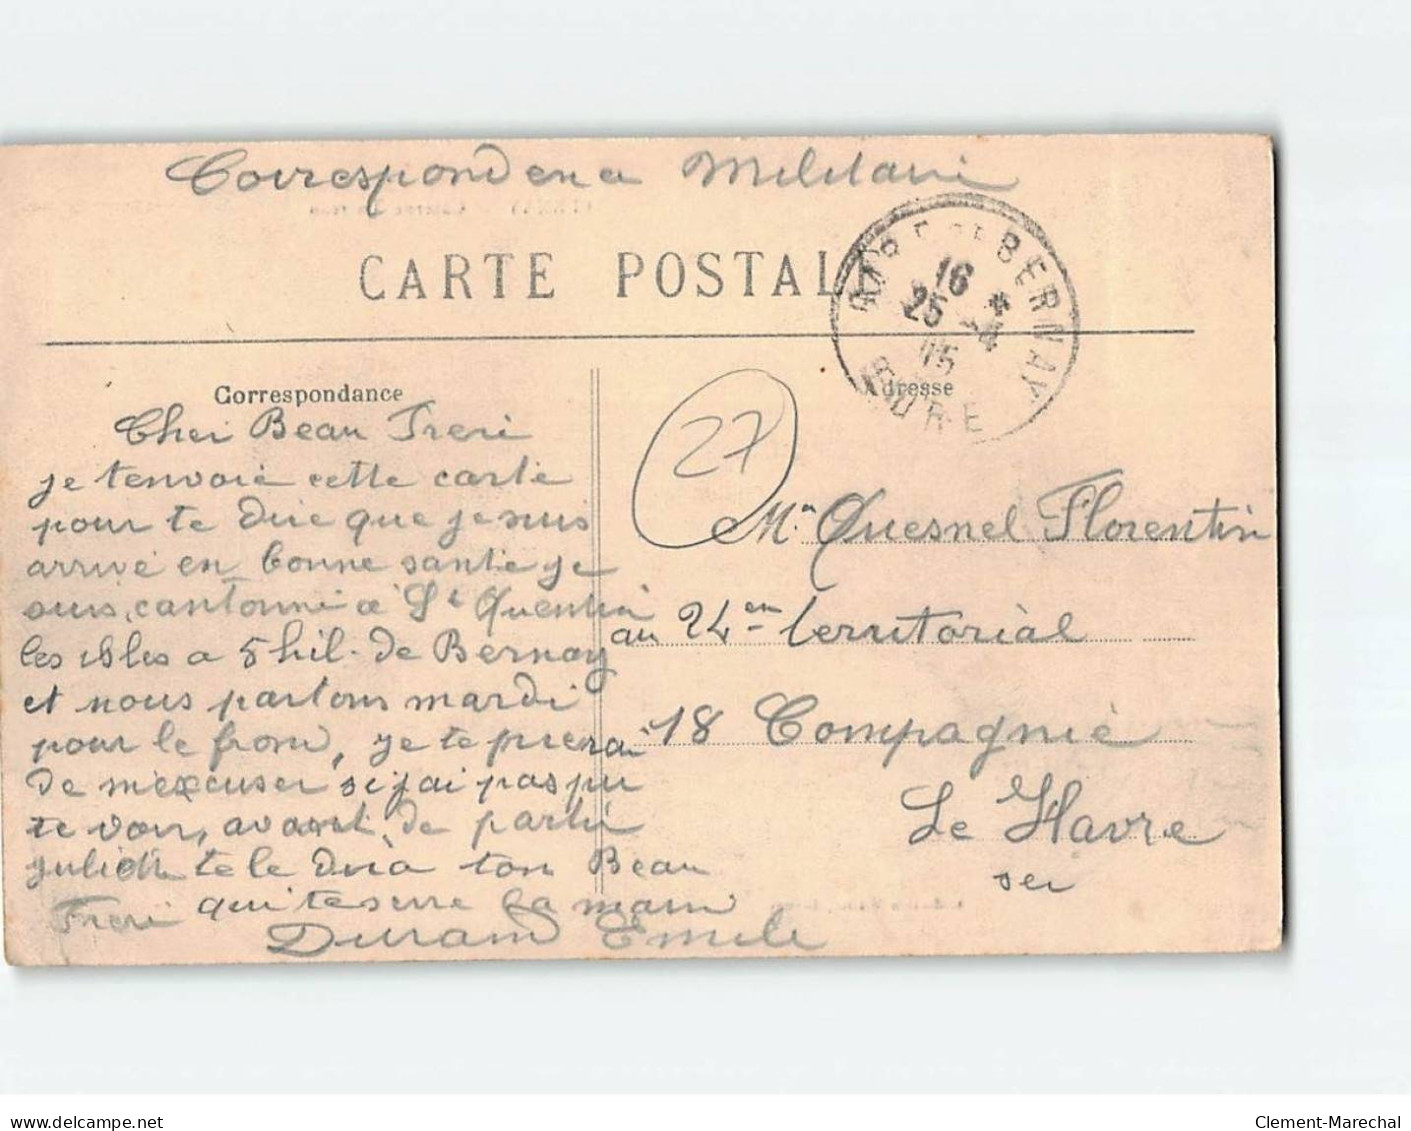 Correspondence Militaire
CARTE POSTALE
BERNAY
16
25 -4
15
EURE
Correspondance
Adresse
27
Cher Beau Frere
je tenvoie cette carte
pour te dire que je suis
arrivé en bonne santé je
suis cantonné a St Quentin
les isles a 5 kil. de Bernay
et nous partons mardi
pour le front, je te prierai
de m'excuser si j'ai pas pu
te voir, avant de partir
te le dira ton Beau
Frere qui te serre la main
Durand Emile
Mr Quesnel Florentin
au 24en territorial
18 Compagnie
Le Havre
www.delcampe.net
Clement-Marechal